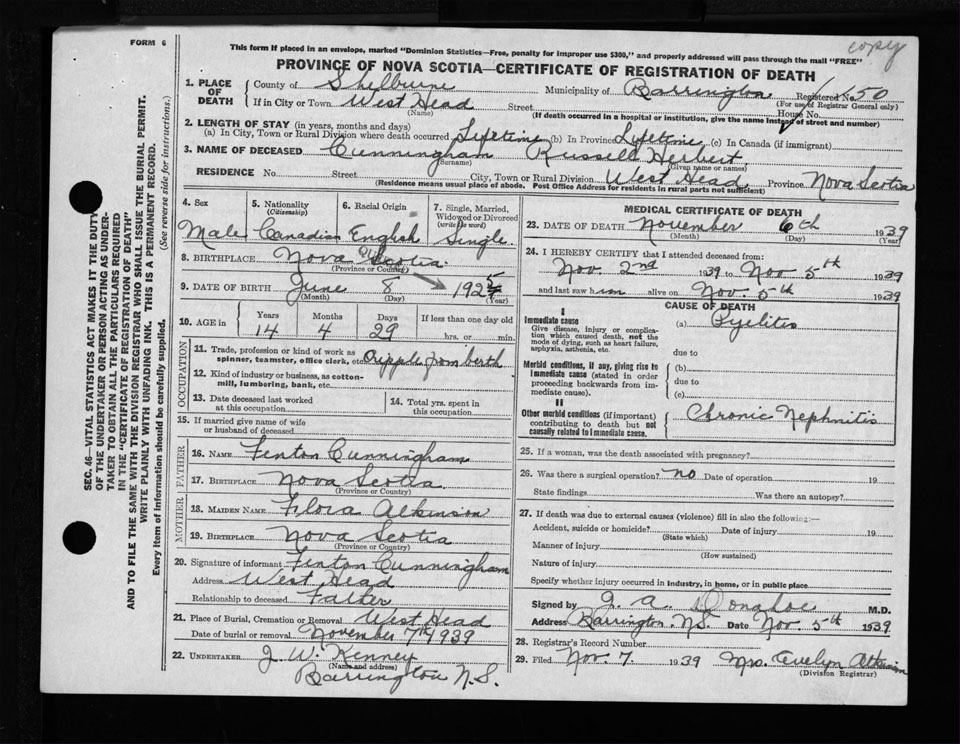 copy
FORM 6
This form if placed in an envelope, marked "Dominion Statistics—Free, penalty for improper use $300," and properly addressed will pass through the mail "FREE"
PROVINCE OF NOVA SCOTIA—CERTIFICATE OF REGISTRATION OF DEATH
1. PLACE OF DEATH County of Shelburne Municipality of Barrington Registered No. 50
(For use of Registrar General only)
If in City or Town West Head Street House No.
(Name) (If death occurred in a hospital or institution, give the name instead of street and number)
2. LENGTH OF STAY (in years, months and days)
(a) In City, Town or Rural Division where death occurred Lifetime (b) In Province Lifetime (c) In Canada (if immigrant)
3. NAME OF DECEASED Cunningham Russell Herbert
(Surname) (Given name or names)
RESIDENCE No. Street City, Town or Rural Division West Head Province Nova Scotia
(Residence means usual place of abode. Post Office Address for residents in rural parts not sufficient)
4. Sex 5. Nationality (Citizenship) 6. Racial Origin 7. Single, Married, Widowed or Divorced (write the word)
Male Canadian English Single
8. BIRTHPLACE Nova Scotia
(Province or Country)
9. DATE OF BIRTH June 8 192
(Month) (Day) (Year)
10. AGE in Years Months Days If less than one day old
14 4 29 hrs. or min.
OCCUPATION
11. Trade, profession or kind of work as spinner, teamster, office clerk, etc. Cripple from berth
12. Kind of industry or business, as cotton-mill, lumbering, bank, etc.
13. Date deceased last worked at this occupation
14. Total yrs. spent in this occupation
15. If married give name of wife or husband of deceased
FATHER
16. NAME Fenton Cunningham
17. BIRTHPLACE Nova Scotia
(Province or Country)
MOTHER
18. MAIDEN NAME Flora Atkinson
19. BIRTHPLACE Nova Scotia
(Province or Country)
20. Signature of informant Fenton Cunningham
Address West Head
Relationship to deceased Father
21. Place of Burial, Cremation or Removal West Head
Date of burial or removal November 7th 1939
22. UNDERTAKER J. W. Kenney
(Name and address)
Barrington N.S.
MEDICAL CERTIFICATE OF DEATH
23. DATE OF DEATH November 6th 1939
(Month) (Day) (Year)
24. I HEREBY CERTIFY that I attended deceased from:
Nov 2nd 1939 to Nov 5th 1939
and last saw him alive on Nov. 5th 1939
CAUSE OF DEATH
I
Immediate cause (a) Pyelitis
Give disease, injury or complication which caused death, not the mode of dying, such as heart failure, asphyxia, asthenia, etc.
due to
Morbid conditions, if any, giving rise to immediate cause (stated in order proceeding backwards from immediate cause).
(b)
due to
(c)
II
Other morbid conditions (if important) contributing to death but not causally related to immediate cause.
Chronic Nephritis
25. If a woman, was the death associated with pregnancy?
26. Was there a surgical operation? no Date of operation 19
State findings Was there an autopsy?
27. If death was due to external causes (violence) fill in also the following:—
Accident, suicide or homicide? Date of injury 19
(State which)
Manner of injury
(How sustained)
Nature of injury
Specify whether injury occurred in industry, in home, or in public place
Signed by J. A. Donahoe M.D.
Address Barrington. N.S. Date Nov. 5th 1939
28. Registrar's Record Number
29. Filed Nov. 7 1939 Mrs. Evelyn Atkinson
(Division Registrar)
SEC. 46—VITAL STATISTICS ACT MAKES IT THE DUTY
OF THE UNDERTAKER OR PERSON ACTING AS UNDER-
TAKER TO OBTAIN ALL THE PARTICULARS REQUIRED
IN THE "CERTIFICATE OF REGISTRATION OF DEATH"
AND TO FILE THE SAME WITH THE DIVISION REGISTRAR WHO SHALL ISSUE THE BURIAL PERMIT.
WRITE PLAINLY WITH UNFADING INK. THIS IS A PERMANENT RECORD.
Every item of information should be carefully supplied. (See reverse side for instructions.)